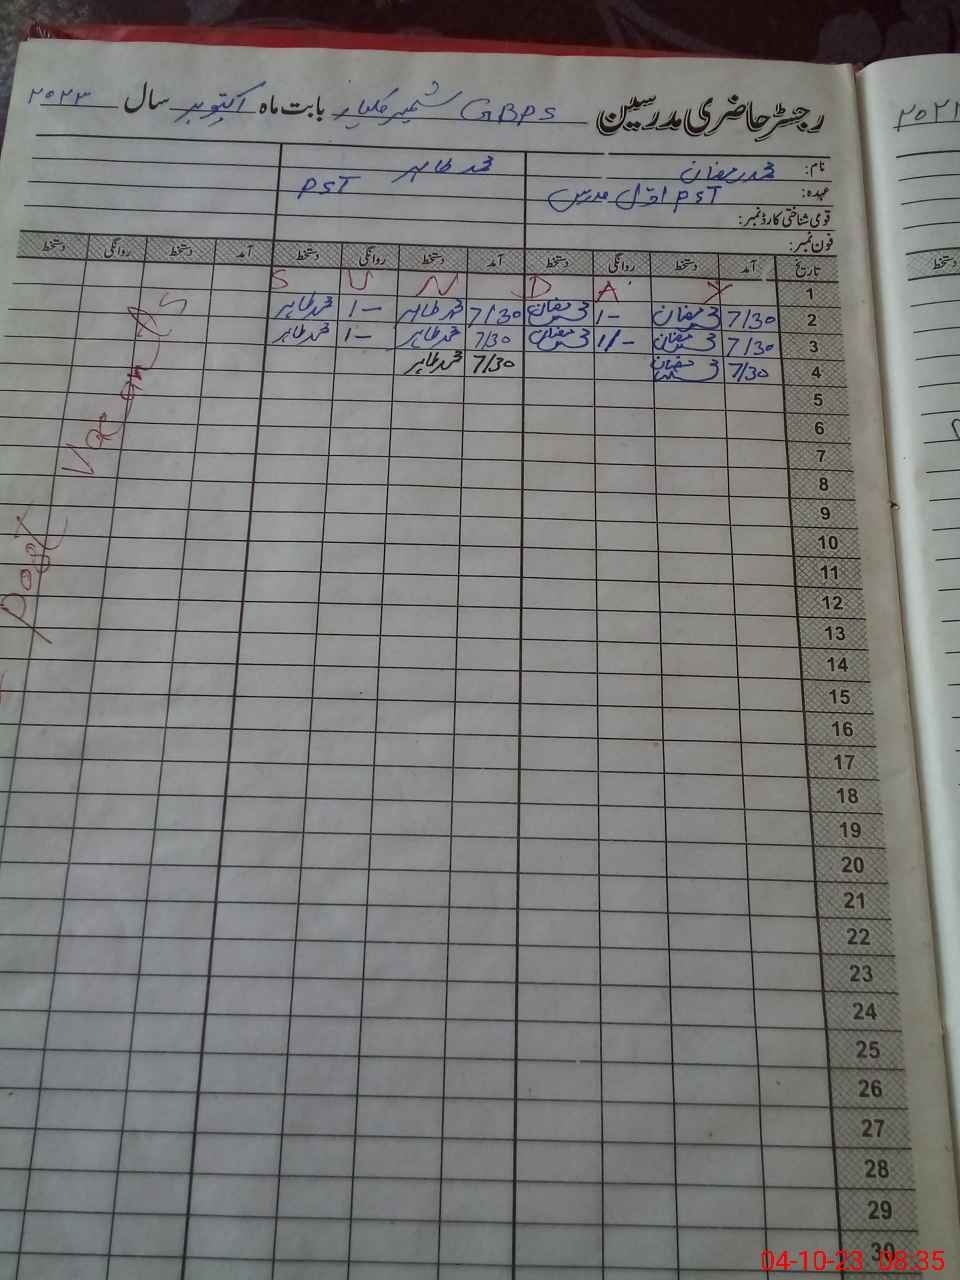 رجسٹر حاضری مدرسین GBPS بابت ماہ اکتوبر سال ۲۰۲۳
نام: محمد رمضان محمد طاہر
عہدہ: PST اوّل مدرس PST
قومی شناختی کارڈ نمبر:
فون نمبر:
تاریخ آمد دستخط روانگی دستخط آمد دستخط روانگی دستخط آمد دستخط روانگی دستخط
1 S U N D A Y
2 7/30 محمد رمضان 1- محمد رمضان 7/30 محمد طاہر 1- محمد طاہر
3 7/30 محمد رمضان 1/- محمد رمضان 7/30 محمد طاہر 1- محمد طاہر
4 7/30 محمد رمضان 7/30 محمد طاہر
5
6
7
8
9
10
11
12
13
14
15
16
17
18
19
20
21
22
23
24
25
26
27
28
29
30
Post
04-10-23 08:35